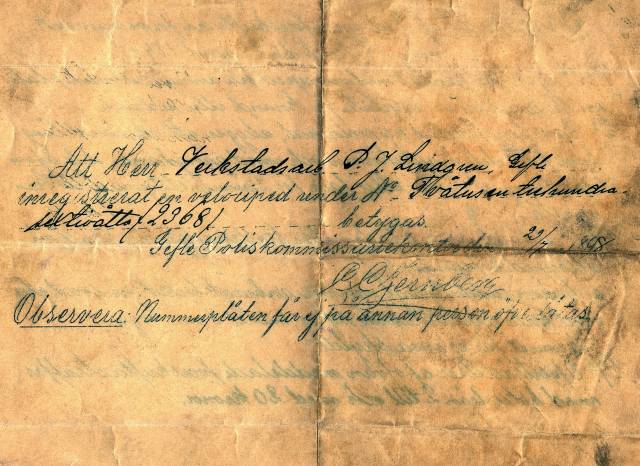 Att Herr Verkstadsarb. P. J. Lindgren, Gefle
inregistrerat en velociped under No Tvåtusentrehundra-
sextioåtta (2368) betygas.
Gefle Poliskommissariekontor den 2/7 1898
Observera: Nummerplåten får ej på annan person öfverlåtas.